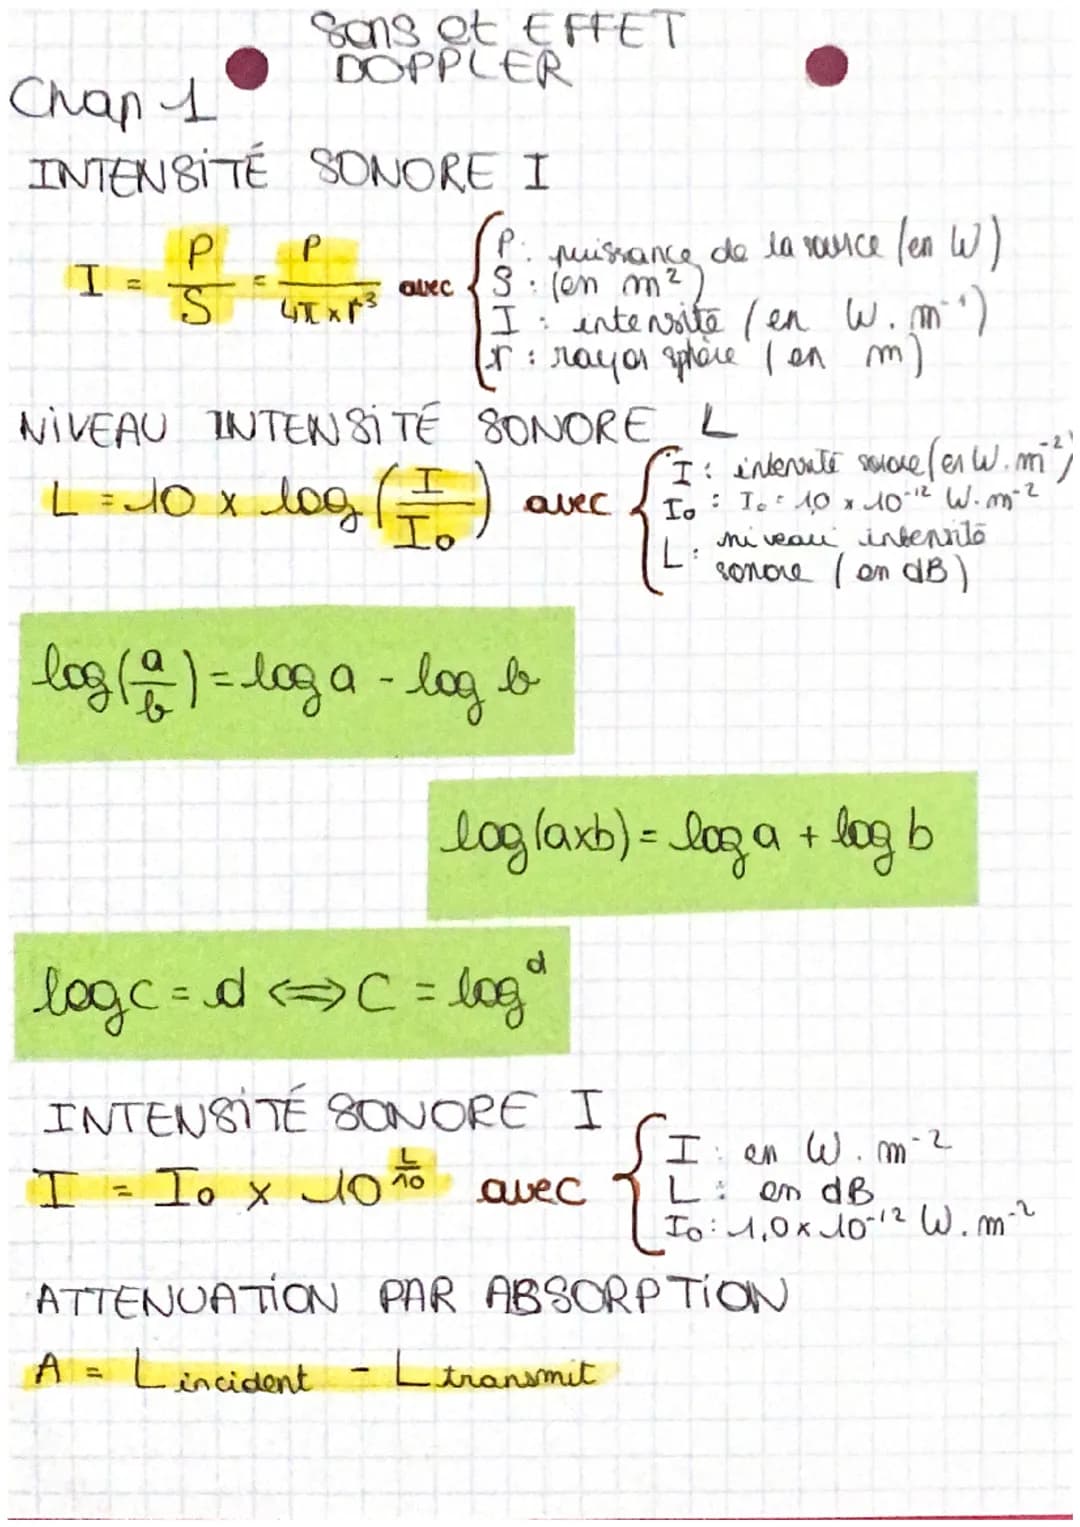 Sons et EFFET
DOPPLER
Chap 1
INTENSITÉ SONORE I
I = P/S = P/(4π × r³) avec { P : puissance de la source (en W)
S : (en m²)
I : intensité (en W.m⁻¹)
r : rayon sphère (en m)
NIVEAU INTENSITÉ SONORE L
L = 10 × log (I/I₀) avec { I : intensité sonore (en W.m⁻²)
I₀ : I₀ = 1,0 × 10⁻¹² W.m⁻²
L : niveau intensité
sonore (en dB)
log(a/b) = log a - log b
log(a×b) = log a + log b
log c = d ⟺ C = log^d
INTENSITÉ SONORE I
I = I₀ × 10^(L/10) avec { I : en W.m⁻²
L : en dB
I₀ : 1,0 × 10⁻¹² W.m⁻²
ATTENUATION PAR ABSORPTION
A = L incident - L transmit